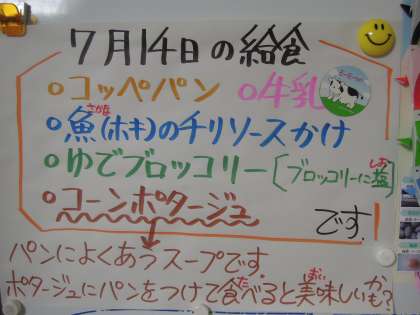 7月14日の給食
○コッペパン ○牛乳
○魚(ホキ)のチリソースかけ
○ゆでブロッコリー〔ブロッコリーに塩〕
○コーンポタージュ です。
パンによくあうスープです。
ポタージュにパンをつけて食べると美味しいかも?